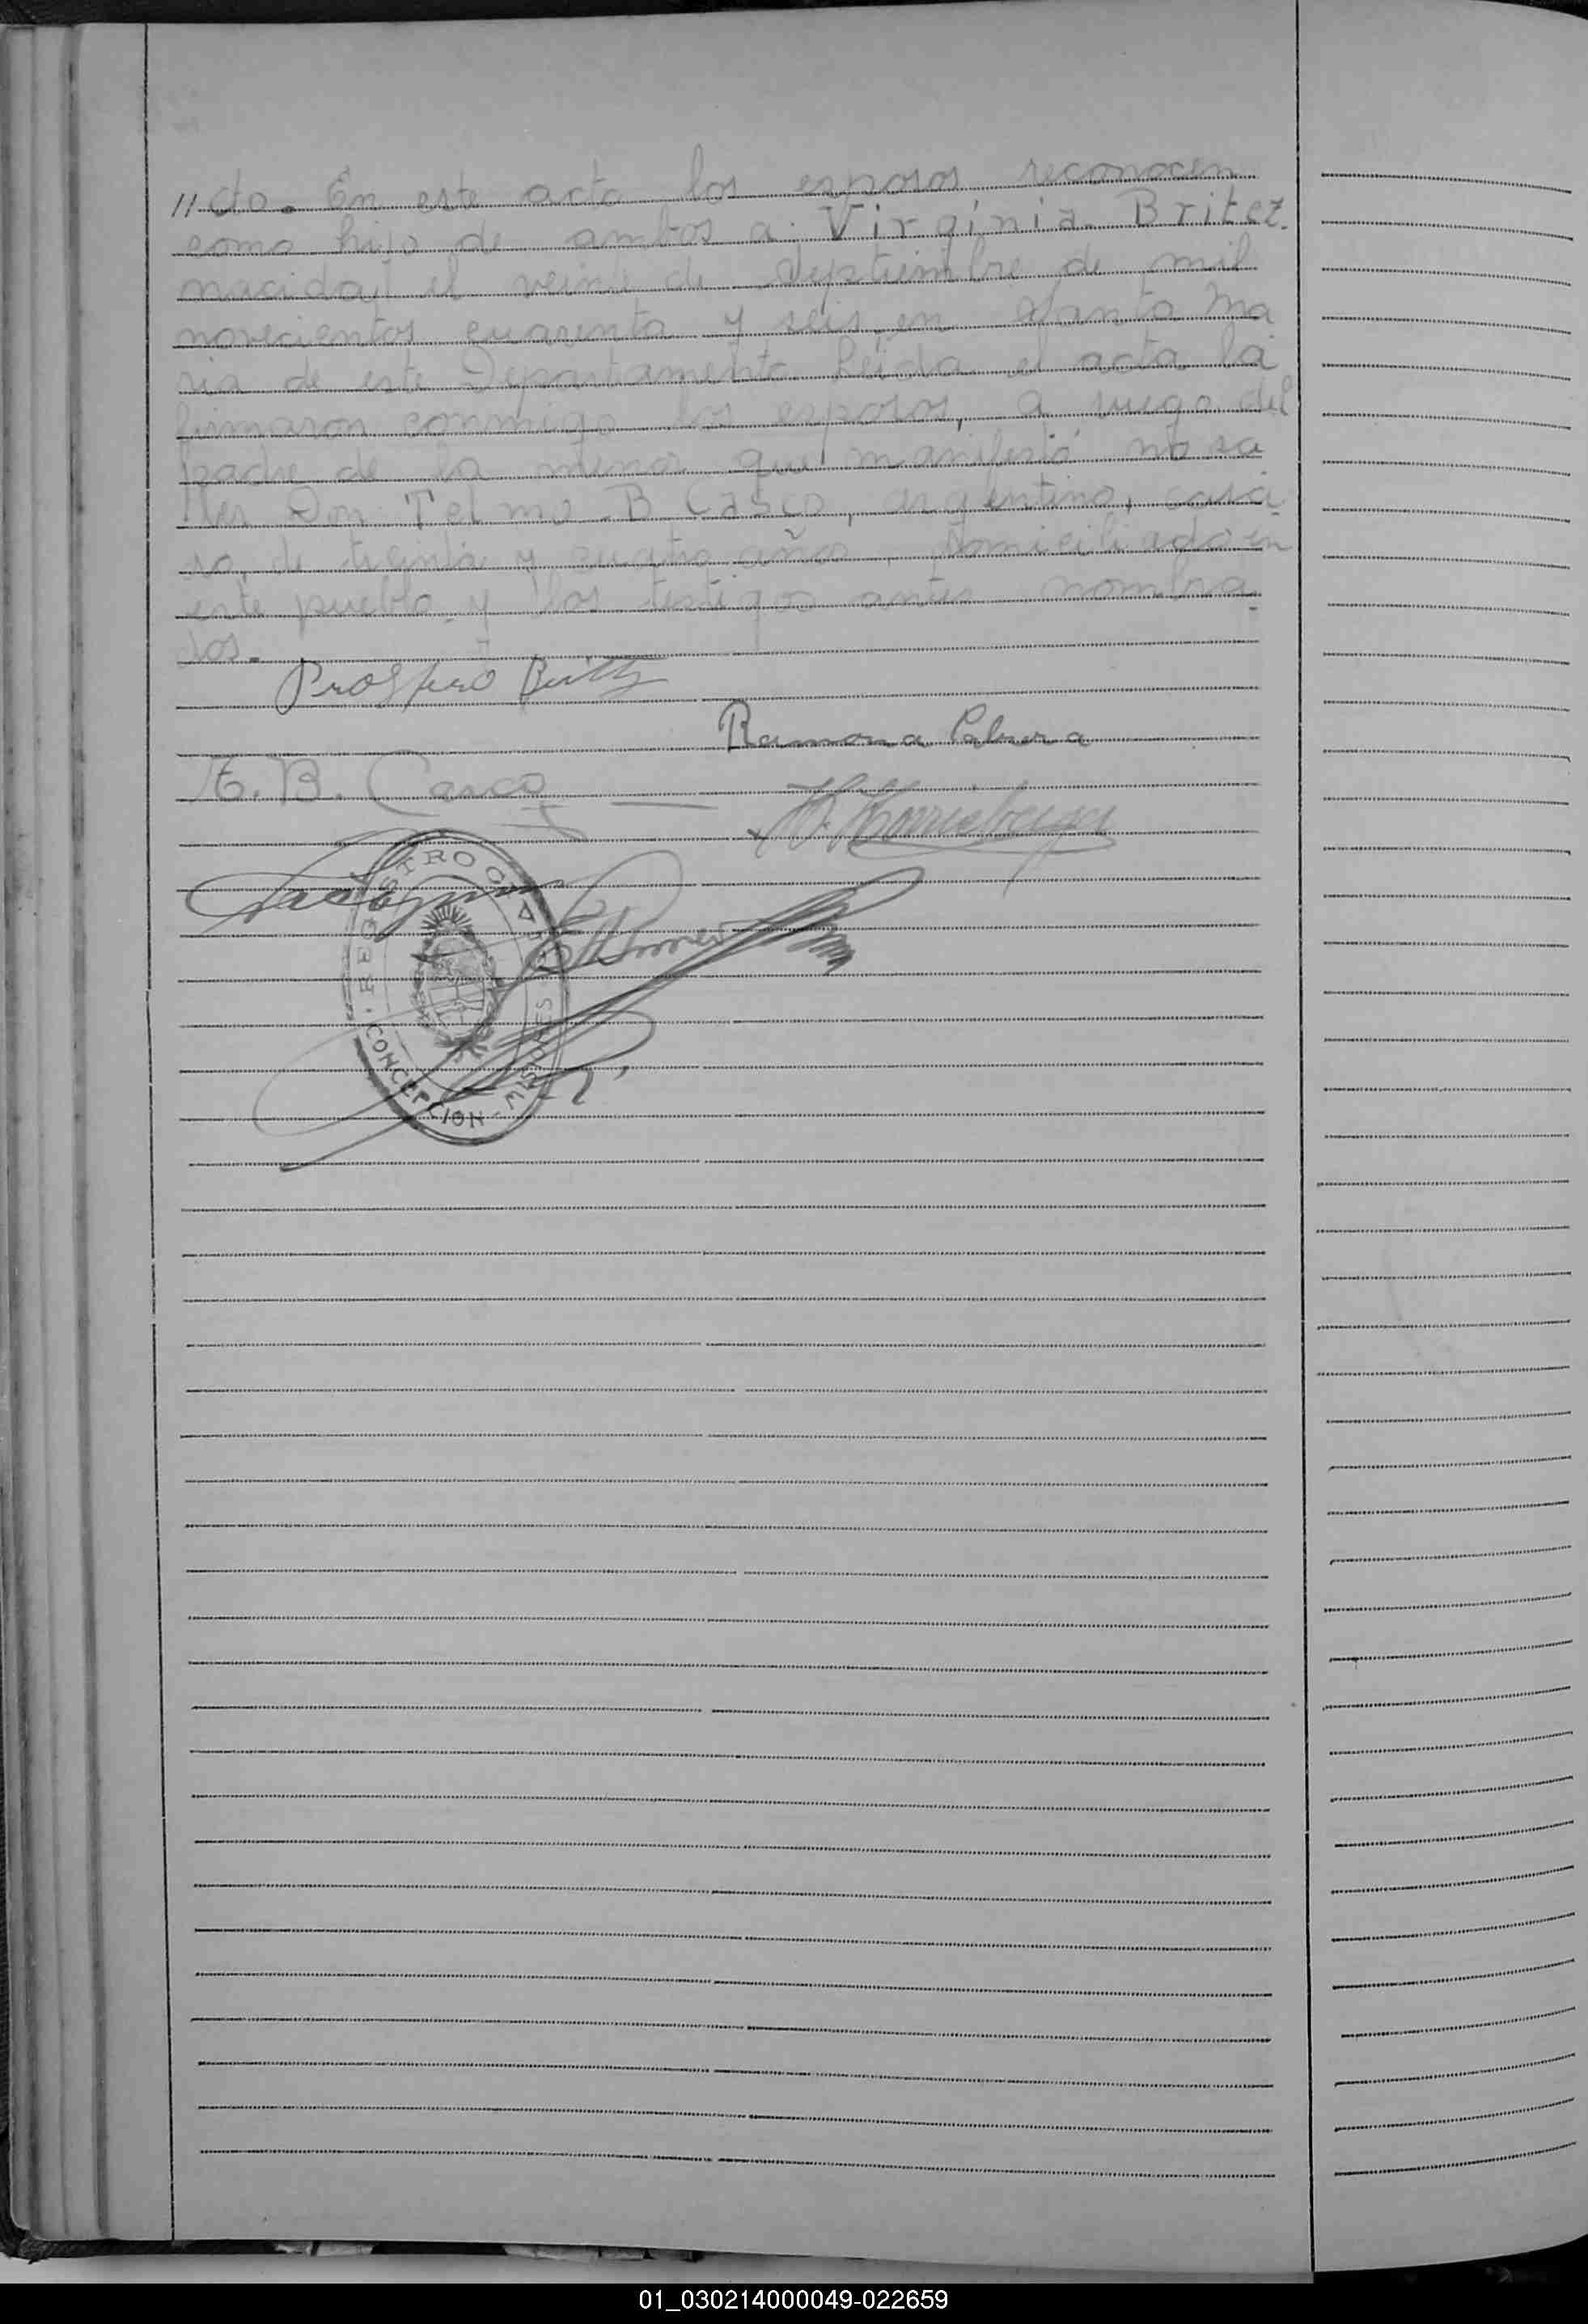 //cto. En este acto los esposos reconocen
como hijo de ambos a Virginia Britez.
nacida, el veinte de Septiembre de mil
novecientos cuarenta y seis, en Santa Ma
ria de este Departamento. Leida el acta la
firmaron conmigo los esposos, a ruego del
padre de la menor que manifestó no sa
ber Don Telmo B Casco, argentino, casa
do, de treinta y cuatro años, domiciliado en
este pueblo y los testigos antes nombra
dos.
Prospero Britz
Ramona Cabrera
t. B. Casco
REGISTRO CIVIL
CONCEPCION - MISIONES
01_030214000049-022659